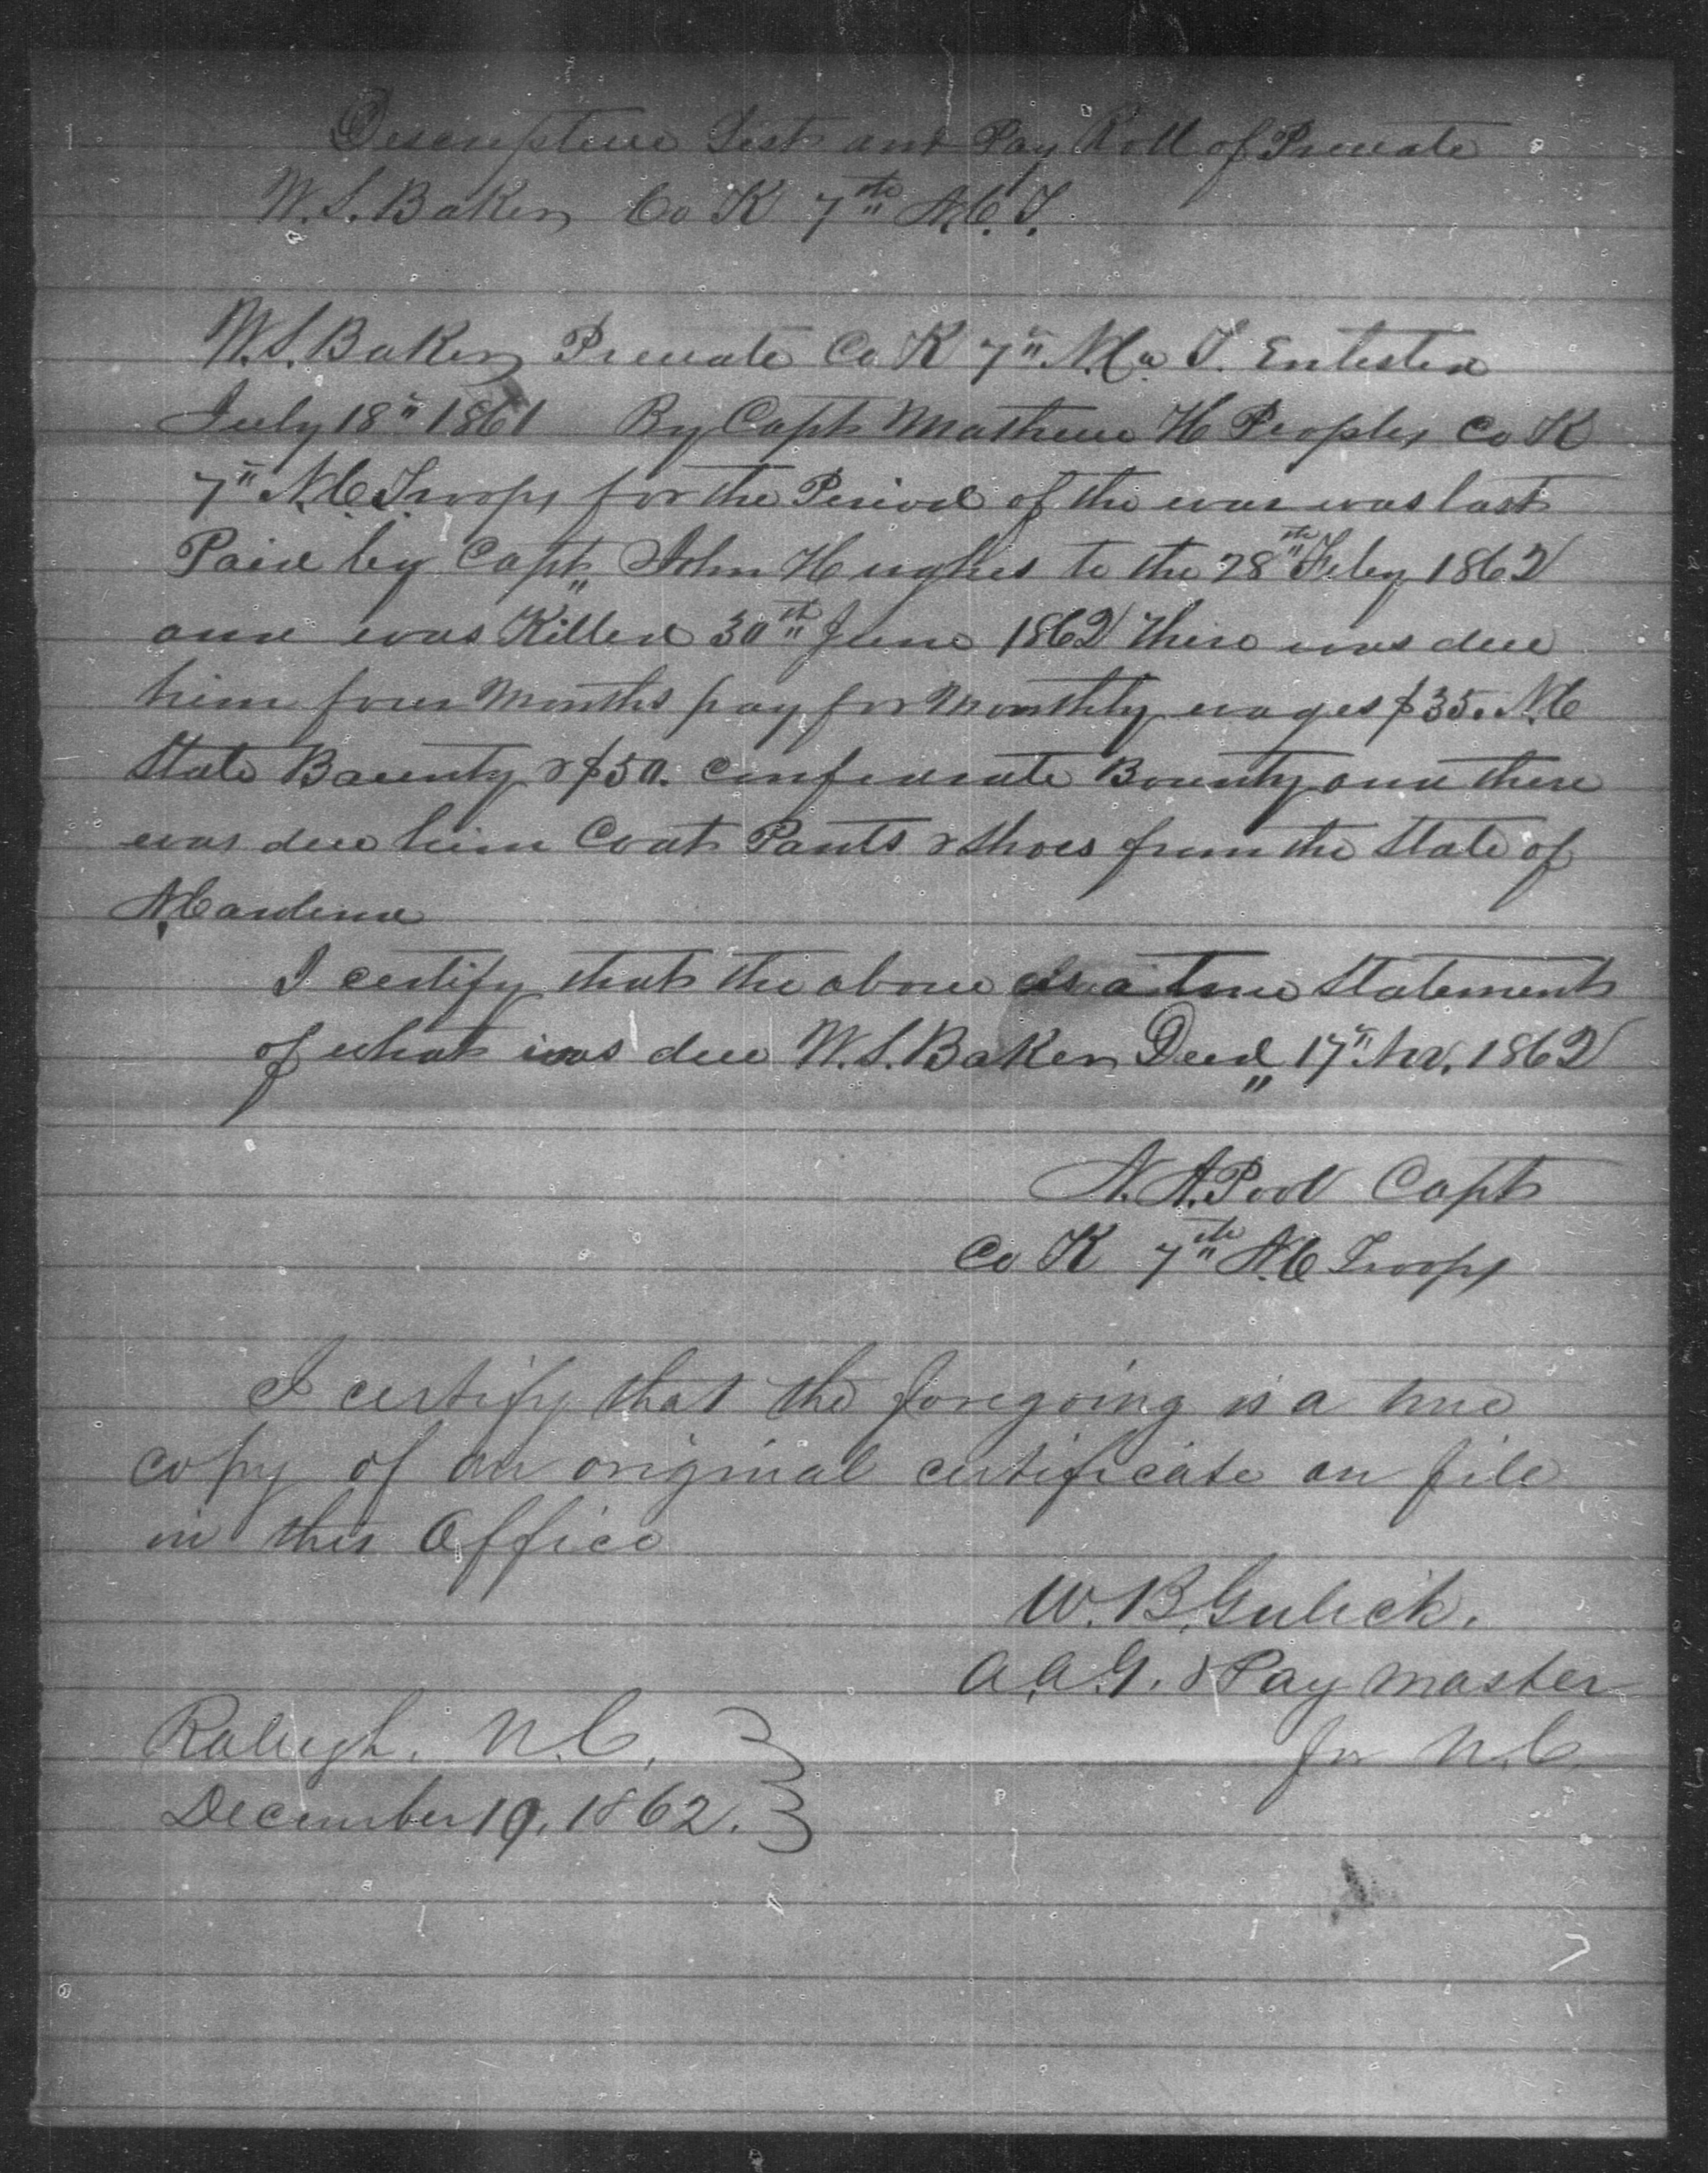 Descriptive List and Pay Roll of Private
W. S. Baker Co K 7th N.C.T.
W. S. Baker Private Co K 7" N.Ca T. Enlisted
July 18" 1861 By Capt Mathew H Peoples Co K
7" N.C. Troops for the Period of the war was last
Paid by Capt John Hughes to the 28th Feby 1862
and was Killed 30th June 1862 There was due
him four Months pay for Monthly wages $35. N.C
State Bounty & $50. Confederate Bounty and there
was due him Coat Pants & Shoes from the State of
N. Carolina
I certify that the above is a true Statement
of what was due W. S. Baker Decd 17" Nov. 1862
N. A. Pool Capt
Co K 7th N.C Troops
I certify that the foregoing is a true
copy of an original certificate on file
in this Office
W. B. Gulick.
A.A.G. & Pay Master
for N.C.
Raleigh. N.C.
December 19, 1862.